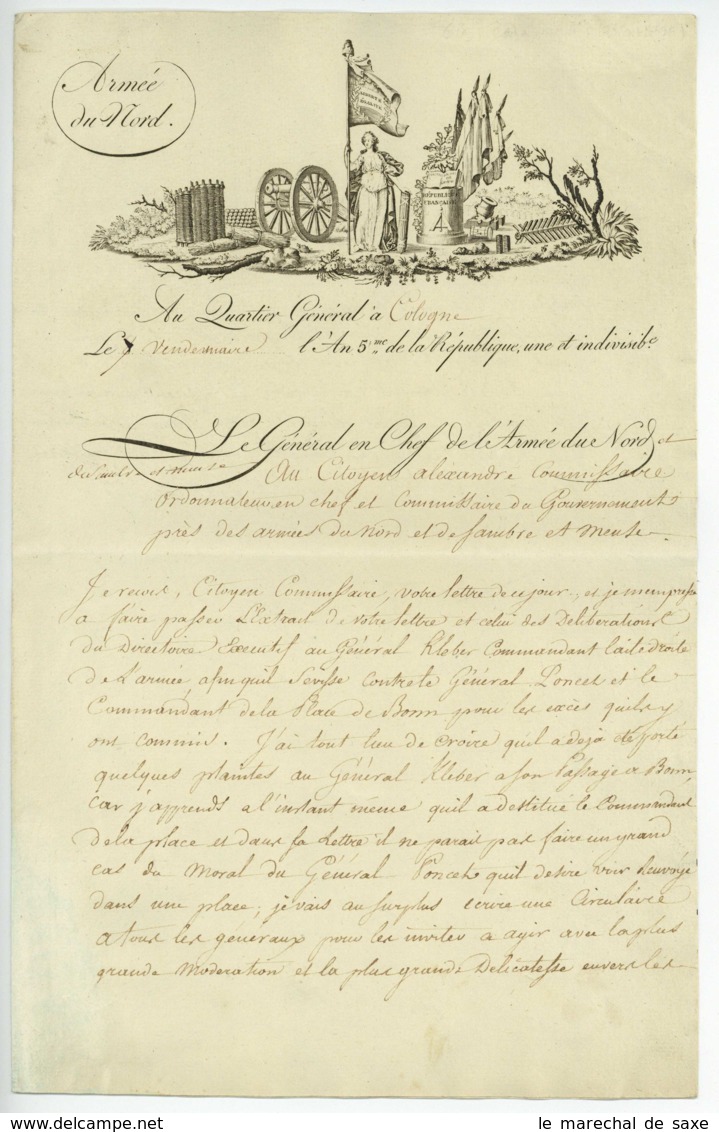 Armée
du Nord.
LIBERTÉ
EGALITÉ
RÉPUBLIQUE
FRANÇAISE
Au Quartier Général à Cologne
Le 7 Vendemiaire l'An 5.me de la République, une et indivisib.e
Le Général en Chef de l'Armée du Nord et
de Sambre et Meuse Au Citoyen alexandre Commissaire
Ordonnateur en chef et Commissaire du Gouvernement
près des armées du Nord et de Sambre et Meuse.
Je reçois, Citoyen Commissaire, votre lettre de ce jour, et je m'empresse
a faire passer L'Extrait de votre lettre et celui des Deliberations
du Directoire Executif au Général Kleber Commandant l'aile droite
de L'armée afin qu'il sevisse contre le Général Poncet et le
Commandant de la Place de Bonn pour les excès quils y
ont commis. J'ai tout lieu de croire qu'il a deja été porté
quelques plaintes au Général Kleber a son Passage a Bonn,
car j'apprends a l'instant même qu'il a destitué le Commandant
de la place et dans sa Lettre il ne parait pas faire un grand
cas du Moral du Général Poncet quil desire voir Renvoyé
dans une place; je vais au surplus écrire une Circulaire
a tous les generaux pour les inviter a agir avec la plus
grande Moderation et la plus grande Délicatesse envers les
le marechal de saxe